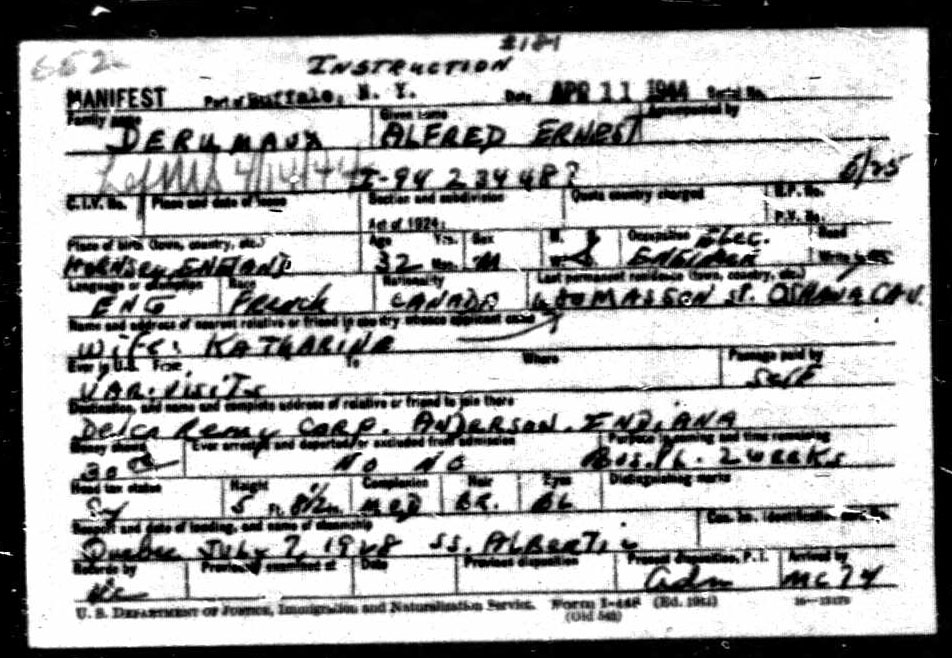 652
2181
INSTRUCTION
MANIFEST Port of Buffalo, N. Y. Date APR 11 1944 Serial No.
Family name Given name Accompanied by
DERUMAUX ALFRED ERNEST
4/14/44 I-94 234487 6/25
C.I.V. No. Place and date of issue Section and subdivision Quota country charged R.P. No.
Act of 1924: P.V. No.
Place of birth (town, country, etc.) Age Yrs. Sex M. S. Occupation Elec. Read
HORNSEY ENGLAND 32 Mos. M W. ENGINEER Write
Language or exemption Race Nationality Last permanent residence (town, country, etc.)
ENG French CANADA THOMASSON ST. OSHAWA CAN.
Name and address of nearest relative or friend in country whence applicant came
Wife: KATHARINA
Ever in U.S. From To Where Passage paid by
VAR. VISITS Self
Destination, and name and complete address of relative or friend to join there
Delco Remy CORP. ANDERSON. INDIANA
Money shown Ever arrested and deported, or excluded from admission Purpose in coming and time remaining
30 NO NO Bus. PL. 2 weeks
Head tax status Height Complexion Hair Eyes Distinguishing marks
5 Ft. 8 1/2 In. MED BR. BL
Seaport and date of landing, and name of steamship
Quebec JULY 7, 1928 SS. ALBERTIC
Records by Previously examined at Date Previous disposition Present disposition, P. I. Arrived by
Adm MC 74
U. S. DEPARTMENT OF JUSTICE, Immigration and Naturalization Service. Form I-448 (Ed. 1944)
(Old 548)